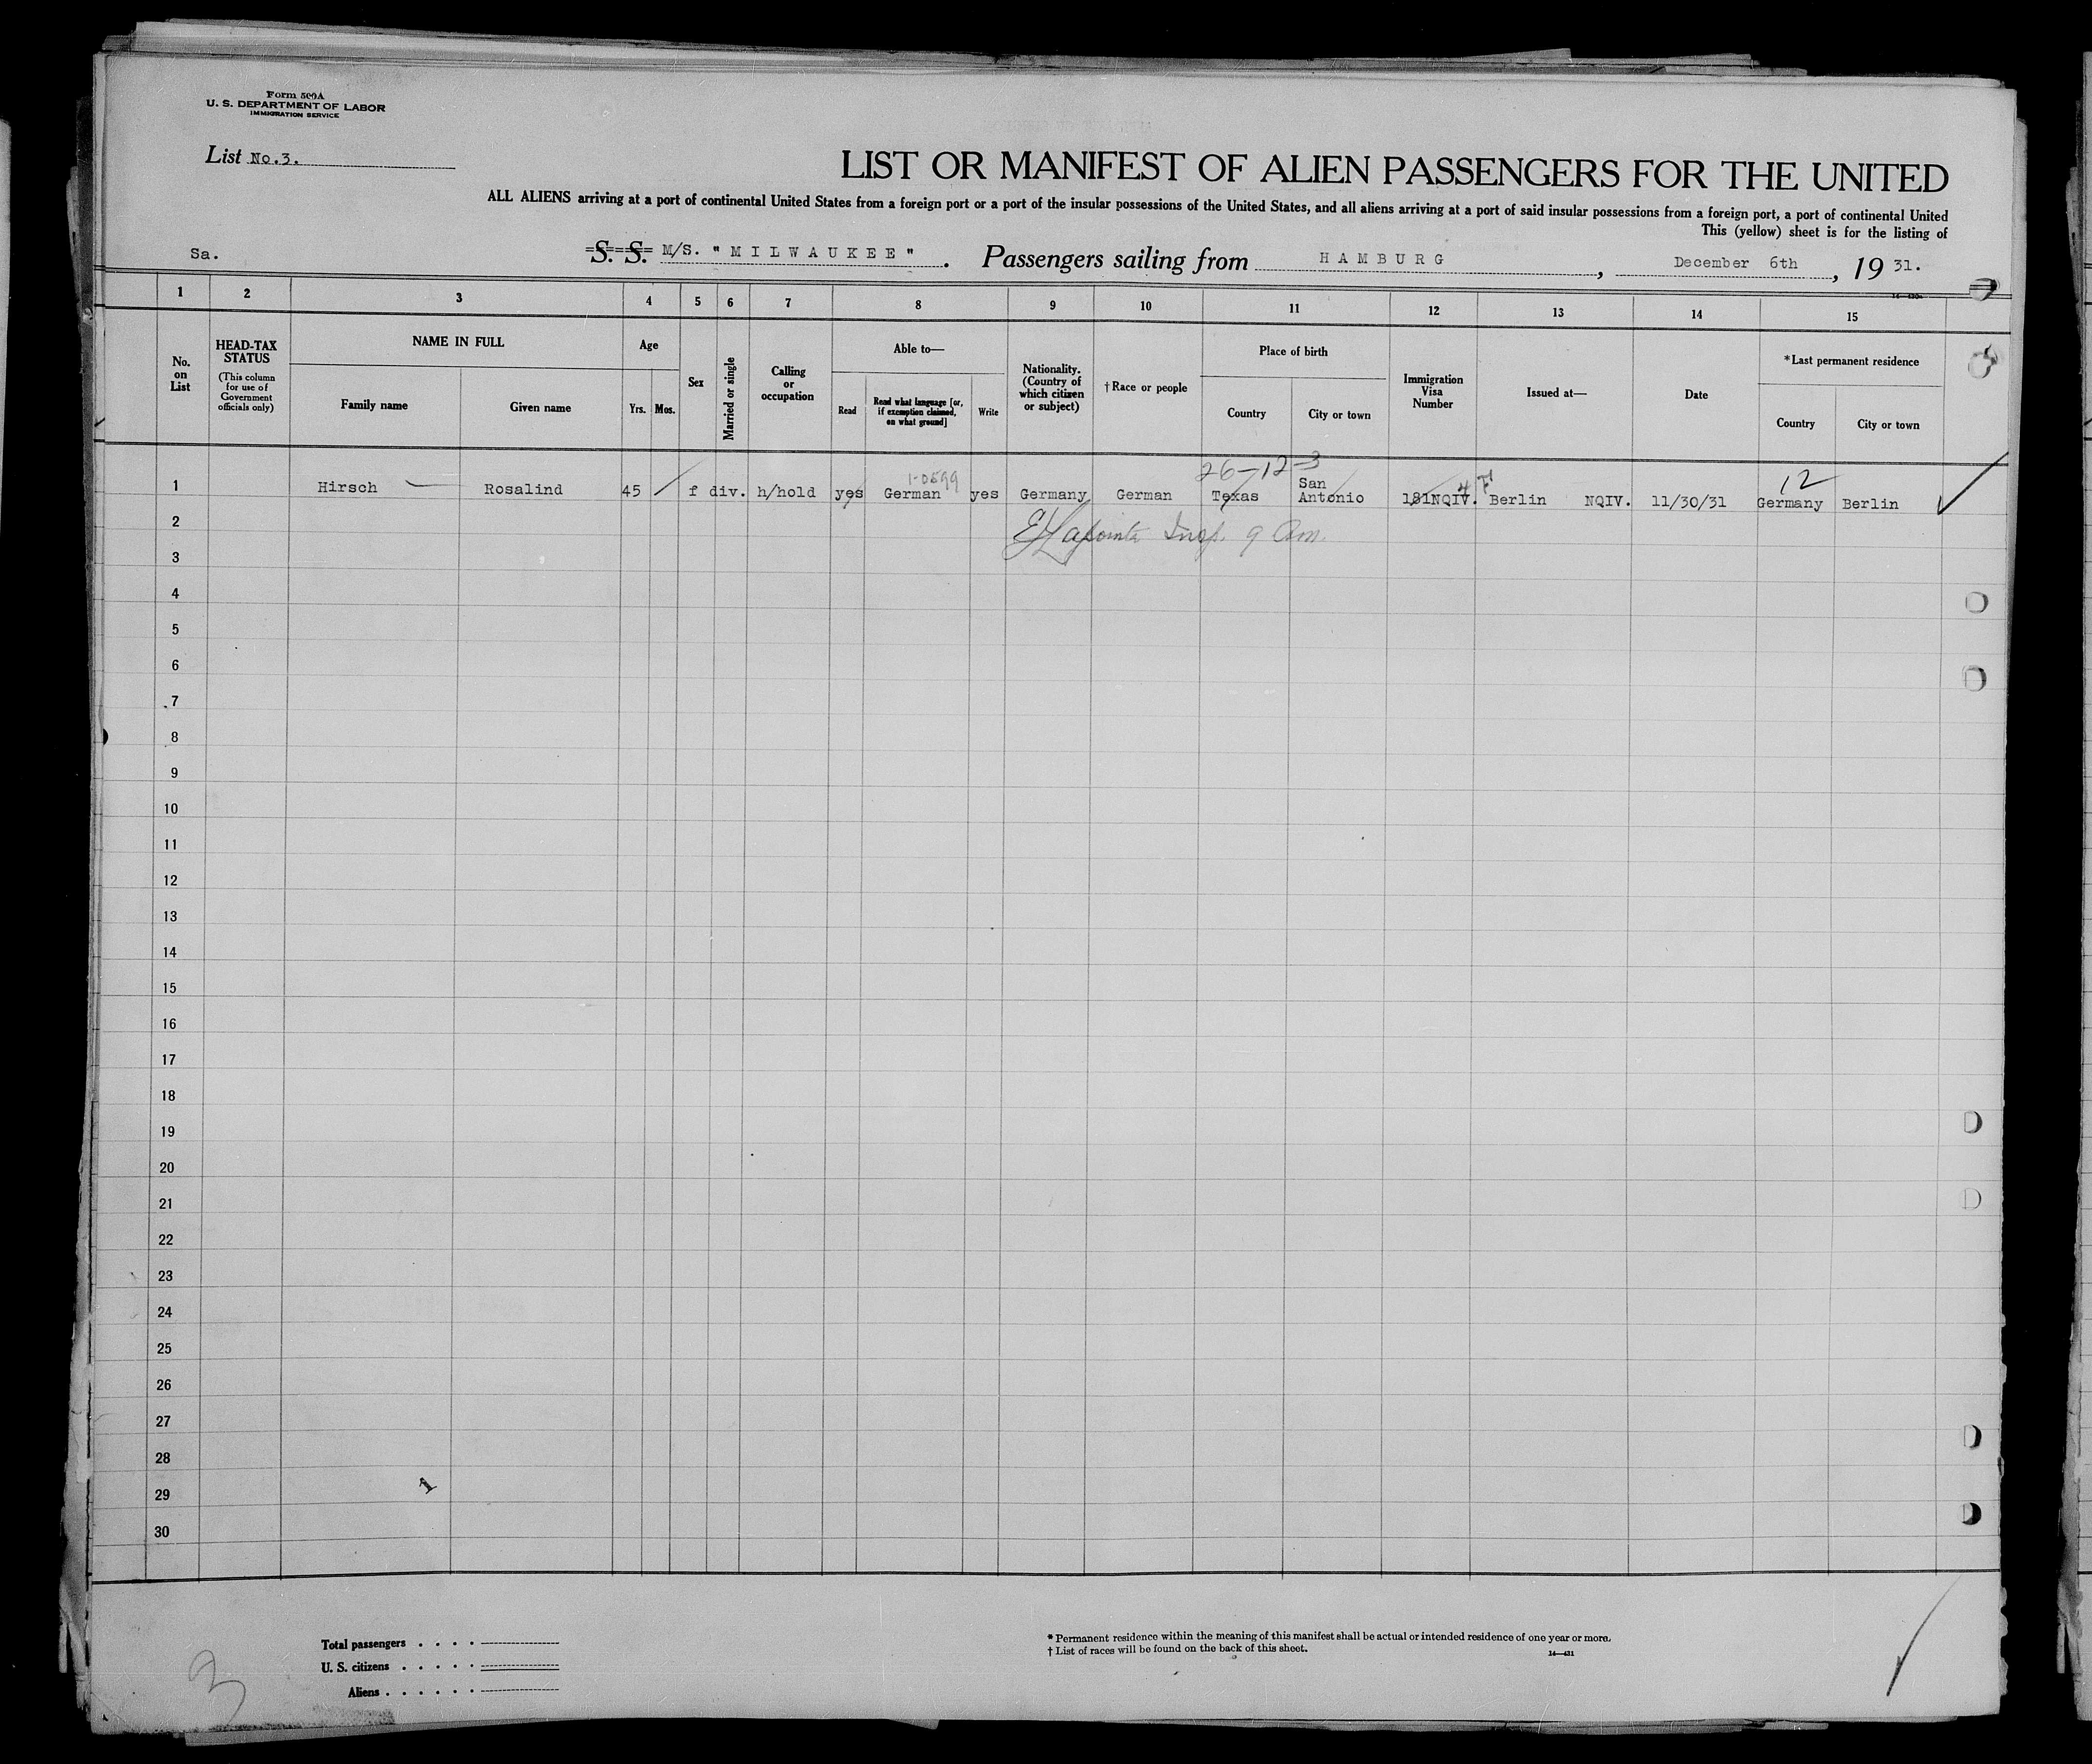 Form 500A
U. S. DEPARTMENT OF LABOR
IMMIGRATION SERVICE
List No.3.
LIST OR MANIFEST OF ALIEN PASSENGERS FOR THE UNITED
ALL ALIENS arriving at a port of continental United States from a foreign port or a port of the insular possessions of the United States, and all aliens arriving at a port of said insular possessions from a foreign port, a port of continental United
This (yellow) sheet is for the listing of
Sa.
S. S. M/S. "MILWAUKEE". Passengers sailing from HAMBURG, December 6th, 19 31.
1 2 3 4 5 6 7 8 9 10 11 12 13 14 15
No. on List
HEAD-TAX STATUS
(This column for use of Government officials only)
NAME IN FULL
Family name
Given name
Age
Yrs. Mos.
Sex
Married or single
Calling or occupation
Able to—
Read
Read what language [or, if exemption claimed, on what ground]
Write
Nationality. (Country of which citizen or subject)
†Race or people
Place of birth
Country
City or town
Immigration Visa Number
Issued at—
Date
*Last permanent residence
Country
City or town
26-12-3
1-0599
12
1 Hirsch Rosalind 45 f div. h/hold yes German yes Germany German Texas San Antonio 181NQIV. Berlin NQIV. 11/30/31 Germany Berlin
2
3
4
5
6
7
8
9
10
11
12
13
14
15
16
17
18
19
20
21
22
23
24
25
26
27
28
29
30
1
Total passengers . . . .
U. S. citizens . . . . .
Aliens . . . . . .
* Permanent residence within the meaning of this manifest shall be actual or intended residence of one year or more.
† List of races will be found on the back of this sheet.
3